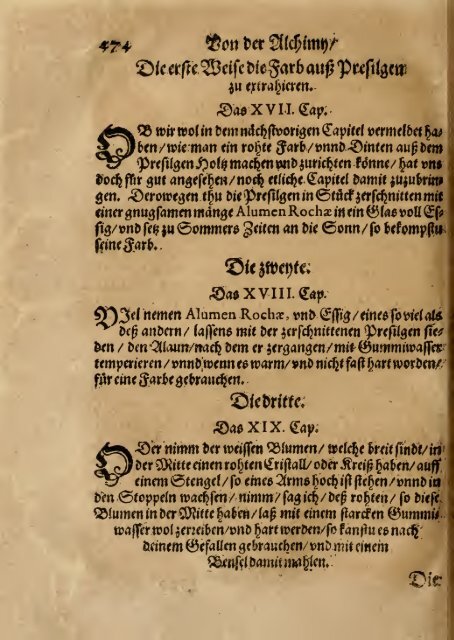 474 Von der Alchimy/
Die erste Weise die Farb auß Presilgen
zu extrahieren.
Das XVII. Cap.
OB wir wol in dem nächstvorigen Capitel vermeldet ha-
ben/wie man ein rohte Farb/vnnd Dinten auß dem
Presilgen Holtz machen vnd zurichten könne/hat vns
doch für gut angesehen/noch etliche Capitel damit zuzubrin-
gen. Derowegen thu die Presilgen in Stück zerschnitten mit
einer gnugsamen mänge Alumen Rochæ in ein Glas voll Es-
sig/vnd setz zu Sommers Zeiten an die Sonn/so bekompstu
seine Farb.
Die zweyte.
Das XVIII. Cap.
VJel nemen Alumen Rochæ, vnd Essig/eines so viel als
deß andern/lassens mit der zerschnittenen Presilgen sie-
den/den Alaun/nach dem er zergangen/mit Gummiwasser
temperieren/vnnd wenn es warm/vnd nicht fast hart worden/
für eine Farbe gebrauchen.
Die dritte.
Das XIX. Cap.
ODer nimm der weissen Blumen/welche breit sindt/in
der Mitte einen rohten Cristall/oder Kreiß haben/auff
einem Stengel/so eines Arms hoch ist stehen/vnnd in
den Stoppeln wachsen/nimm/sag ich/deß rohten/so diese
Blumen in der Mitte haben/laß mit einem starcken Gummi-
wasser wol zerreiben/vnd hart werden/so kanstu es nach
deinem Gefallen gebrauchen/vnd mit einem
Bensel damit mahlen.
Die